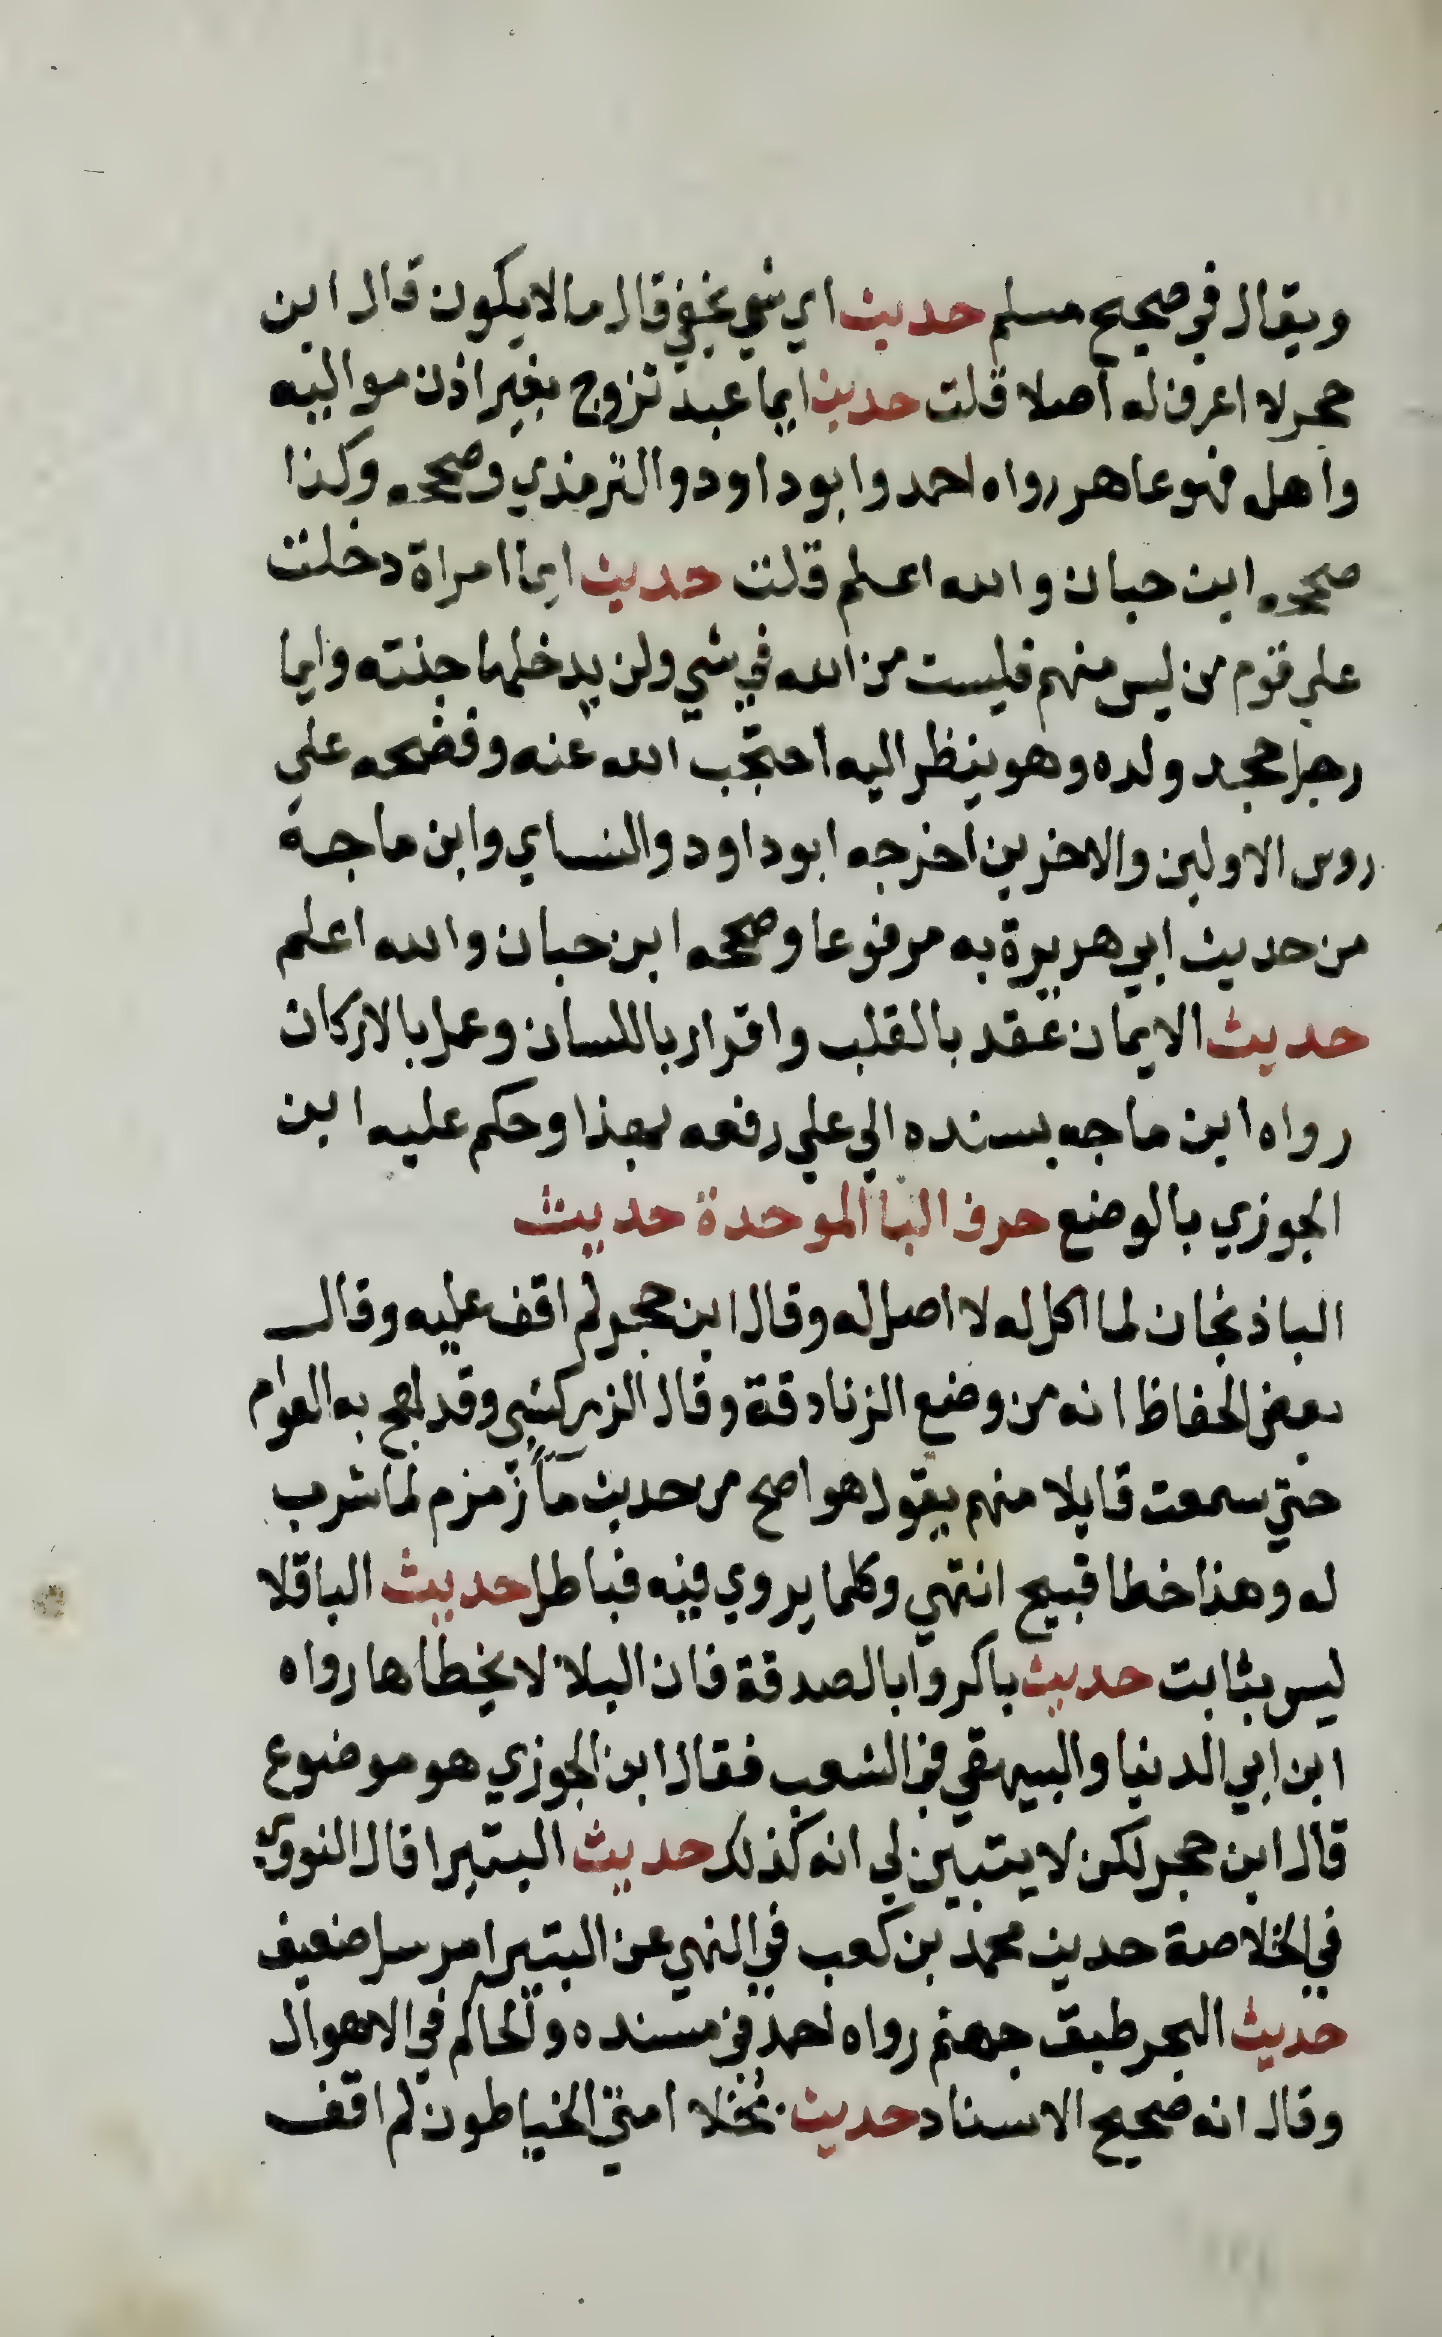 ويقال في صحيح مسلم حديث اي شي يخفي قال مالا يكون قال ابن
حجر لا اعرف له اصلا قلت حديث ايما عبد تزوج بغير اذن مواليه
واهل فهو عاهر رواه احمد وابو داود والترمذي وصححه وكذا
صححه ابن حبان والله اعلم قلت حديث ايما امراة دخلت
علي قوم من ليس منهم فليست من الله في شي ولن يدخلها جنته وايما
رجل جحد ولده وهو ينظر اليه احتجب الله عنه وفضحه علي
روس الاولين والاخرين اخرجه ابو داود والنساي وابن ماجة
من حديث ابي هريرة به مرفوعا وصححه ابن حبان والله اعلم
حديث الايمان عقد بالقلب واقرار باللسان وعمل بالاركان
رواه ابن ماجه بسنده الي علي رفعه بهذا وحكم عليه ابن
الجوزي بالوضع حرف البا الموحدة حديث
الباذنجان لما اكل له لا اصل له وقال ابن حجر لم اقف عليه وقال
بعض الحفاظ انه من وضع الزنادقة وقال الزركشي وقد لهج به العوام
حتي سمعت قايلا منهم يقول هو اصح من حديث مآ زمزم لما شرب
له وهذا خطا قبيح انتهي وكلما يروي فيه فباطل حديث الباقلا
ليس بثابت حديث باكروا بالصدقة فان البلا لا يخطاها رواه
ابن ابي الدنيا والبيهقي في الشعب فقال ابن الجوزي هو موضوع
قال ابن حجر لكن لا يتبين لي انه كذلك حديث البتيرا قال النووي
في الخلاصة حديث محمد بن كعب في النهي عن البتيرا مرسل ضعيف
حديث البحر طبق جهنم رواه احمد في مسنده والحاكم في الاهوال
وقال انه صحيح الاسناد حديث بخلا امتي الخياطون لم اقف